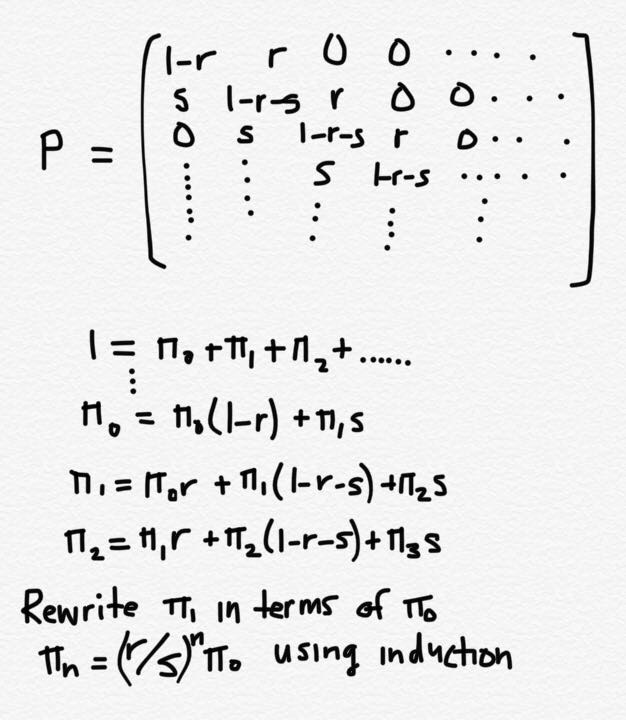 1-r r 0 0 ....
s 1-r-s r 0 0 ...
P = 0 s 1-r-s r 0 .. .
s 1-r-s .... .
1 = π₀ + π₁ + π₂ + ......
π₀ = π₀(1-r) + π₁s
π₁ = π₀r + π₁(1-r-s) + π₂s
π₂ = π₁r + π₂(1-r-s) + π₃s
Rewrite π₁ in terms of π₀
πₙ = (r/s)ⁿ π₀ using induction